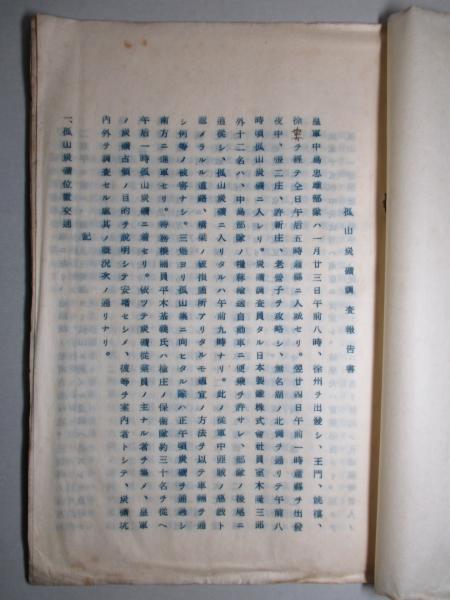 孤山炭礦調査報告書
皇軍中島忠雄部隊ハ一月廿三日午前八時、徐州ヲ出發シ、王門、姚樓、
徐　ヲ經テ全日午后五時蕭縣ニ入城セリ。翌廿四日午前一時蕭縣ヲ出發
夜中、張二庄、許新庄、老　子ヲ攻略シ、無名湖ノ北側ヲ通リテ午前八
時頃孤山炭礦ニ入レリ。炭礦調查員タル日本製鐵株式會社員室木　三郎
外十二名ハ、中島部隊ノ糧秣輸送自動車ニ便乘ヲ許サレ、部隊ノ後尾ニ
追從シ、孤山炭礦ニ入リタルハ午前九時ナリ。此ノ從軍中匪賊ノ惡戲ト
認メラルル道路、橋梁ノ破損箇所アリタルモ適宜ノ方法ヲ以テ車輛ヲ通
シ何等ノ被害ナシ。三堡ヨリ孤山集ニ向ヒタル隊ハ正午頃炭礦ヲ通過シ
南方ニ進軍セリ。特務機關員平木基義氏ハ楡庄ノ保衛隊約三十名ヲ從ヘ
午后一時孤山炭礦ニ着セリ。依ツテ炭礦從業員ノ主ナル者ヲ集メ、皇軍
ノ炭礦占領ノ目的ヲ說明シテ安堵セシメ、彼等ヲ案內者トシテ、炭礦坑
內外ヲ調查セル處其ノ概況次ノ通リナリ。
記
一、孤山炭礦位置交通